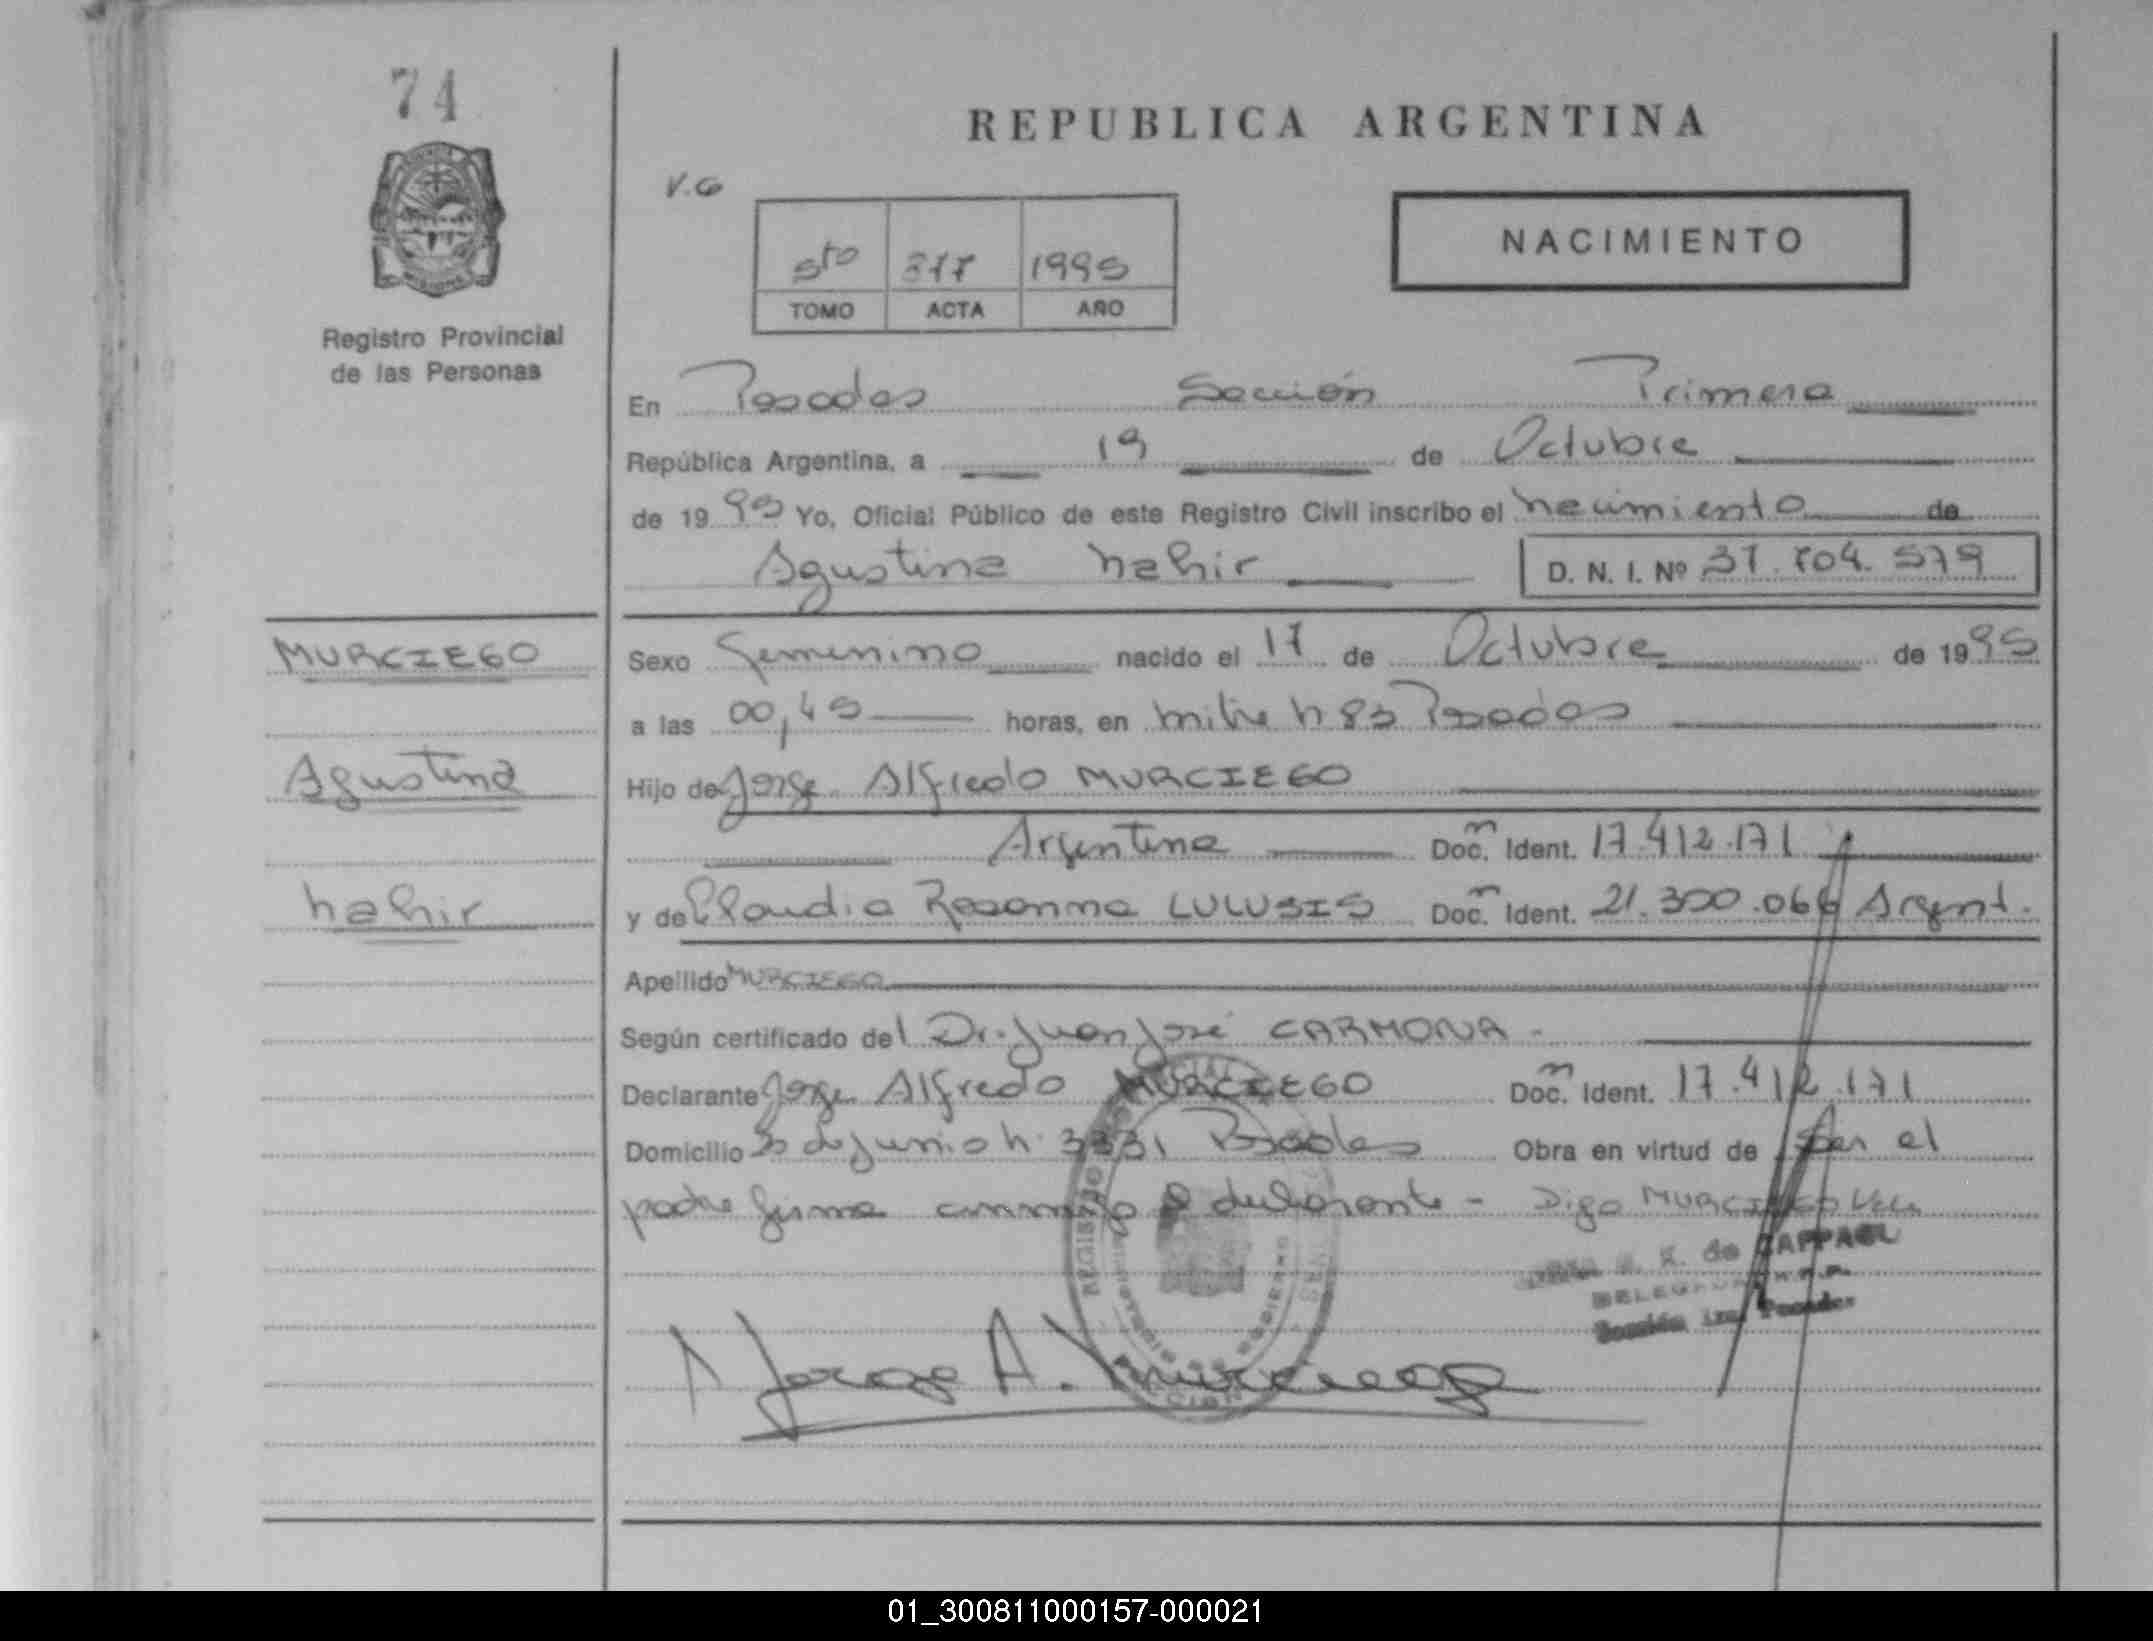 74
REPUBLICA ARGENTINA
V.G
NACIMIENTO
5to 377 1995
TOMO ACTA AÑO
Registro Provincial
de las Personas
En Posadas Sección Primera
República Argentina, a 19 de Octubre
de 1995 Yo, Oficial Público de este Registro Civil inscribo el nacimiento de
Agustina nahir D. N. I. Nº 37.704.579
MURCIEGO
Agustina
nahir
Sexo femenino nacido el 17 de Octubre de 1995
a las 00,45 horas, en mitre n 83 Posadas
Hijo de Jorge Alfredo MURCIEGO
Argentina Doc. Ident. 17.412.171
y de Claudia Rosanna Doc. Ident. 21.300.066 Argent.
Apellido MURCIEGO
Según certificado del Dr. Juan José CARMONA -
Declarante Jorge Alfredo MURCIEGO Doc. Ident. 17.412.171
Domicilio de junio n. 3331 Posadas Obra en virtud de ser el
padre firma conmigo el declarante - Digo MURCIEGO Vale
de ZAPPAEL
Sección 1ra. Posadas
Jorge A. Murciego
01_300811000157-000021